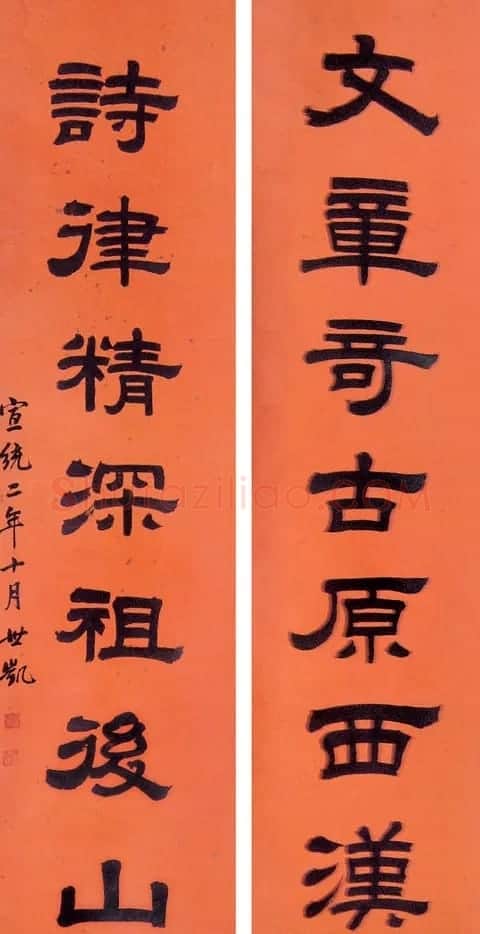 文章奇古原西漢
詩律精深祖後山
宣統二年十月 世凱